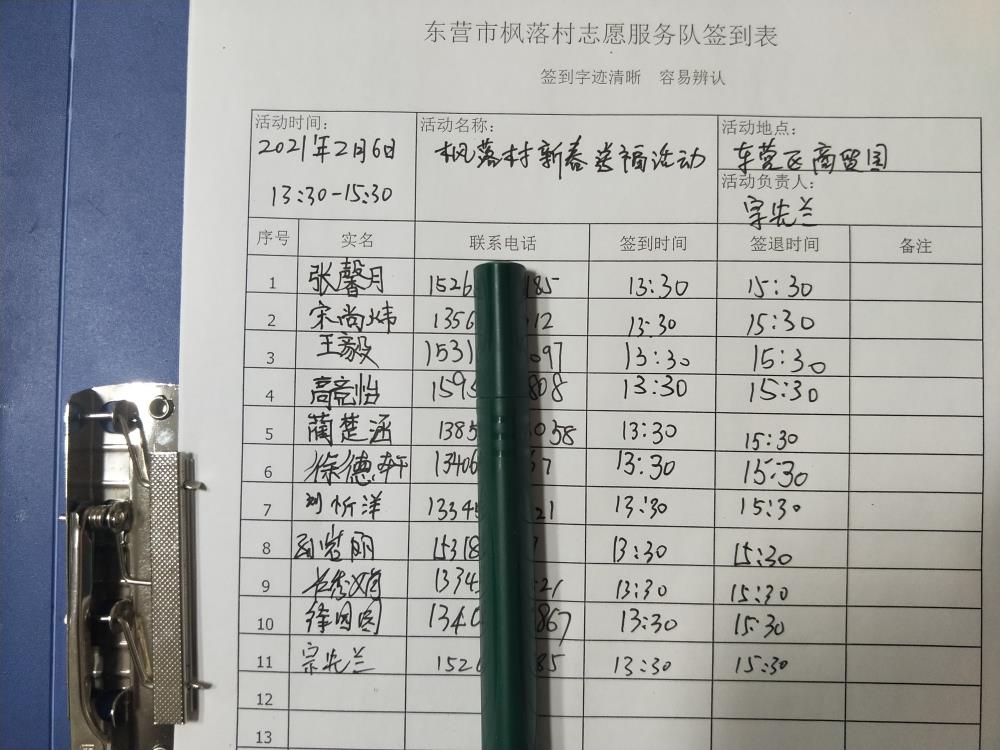 东营市枫落村志愿服务队签到表
签到字迹清晰 容易辨认
活动时间： 活动名称： 活动地点：
2021年2月6日 枫落村新春送福活动 东营区商贸园
13:30-15:30 活动负责人：
宗先兰
序号 实名 联系电话 签到时间 签退时间 备注
1 张馨月 1526 185 13:30 15:30
2 宋尚炜 1356 12 13:30 15:30
3 王毅 1531 097 13:30 15:30
4 高亮怡 1595 808 13:30 15:30
5 蔺楚涵 1385 058 13:30 15:30
6 徐德轩 13406 57 13:30 15:30
7 刘忻洋 13345 21 13:30 15:30
8 丽 15318 7 13:30 15:30
9 1334 21 13:30 15:30
10 徐团团 1340 867 13:30 15:30
11 宗先兰 1526 85 13:30 15:30
12
13